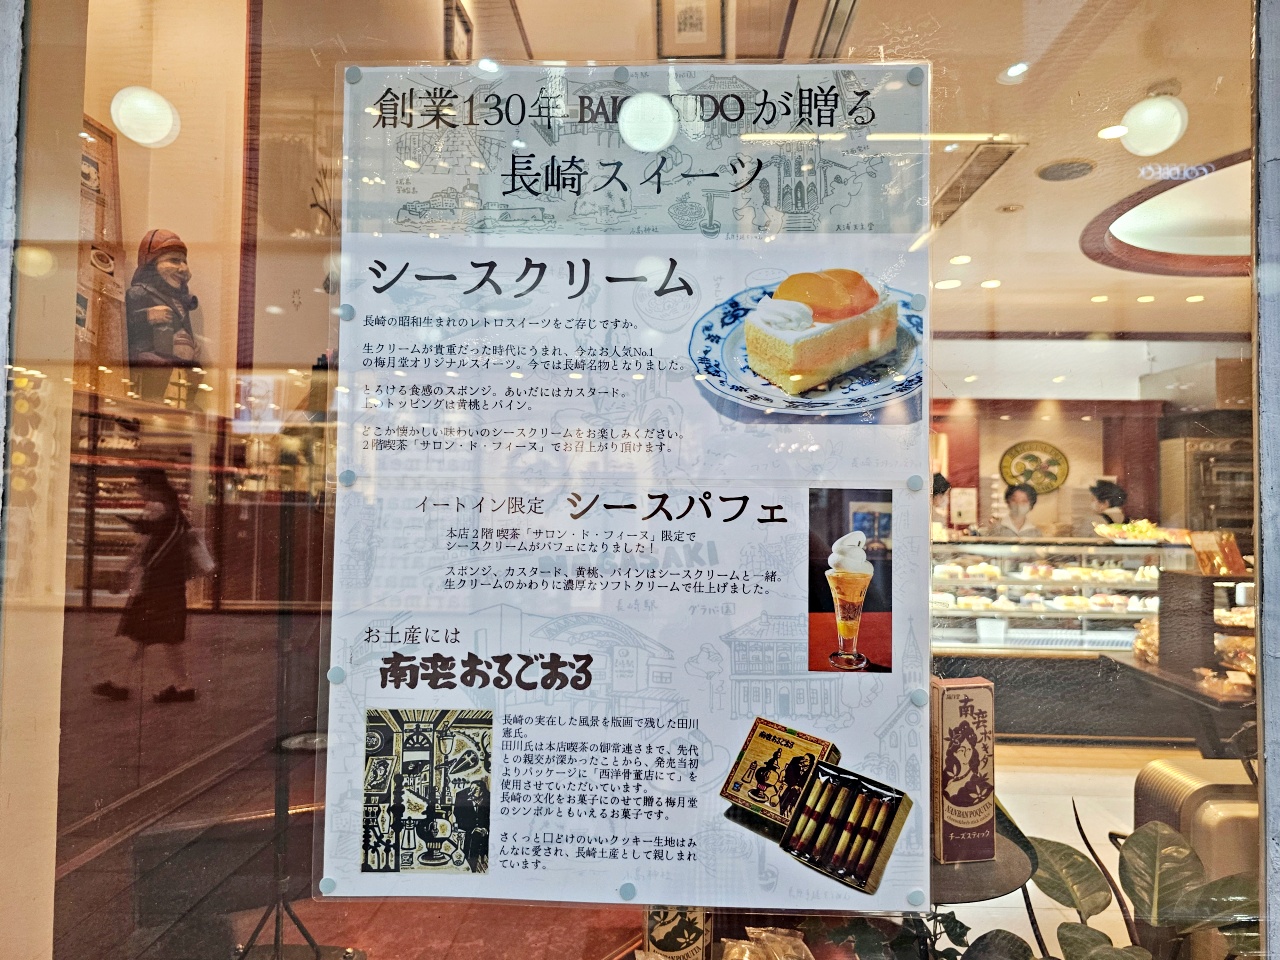 創業130年 BAIGETSUDOが贈る
長崎スイーツ
シースクリーム
長崎の昭和生まれのレトロスイーツをご存じですか。
生クリームが貴重だった時代にうまれ、今なお人気No.1
の梅月堂オリジナルスイーツ。今では長崎名物となりました。
とろける食感のスポンジ。あいだにはカスタード。
上のトッピングは黄桃とパイン。
どこか懐かしい味わいのシースクリームをお楽しみください。
2階喫茶「サロン・ド・フィーヌ」でお召上がり頂けます。
イートイン限定 シースパフェ
本店2階喫茶「サロン・ド・フィーヌ」限定で
シースクリームがパフェになりました！
スポンジ、カスタード、黄桃、パインはシースクリームと一緒。
生クリームのかわりに濃厚なソフトクリームで仕上げました。
お土産には
南蛮おるごおる
長崎の実在した風景を版画で残した田川
憲氏。
田川氏は本店喫茶の御常連さまで、先代
との親交が深かったことから、発売当初
よりパッケージに「西洋骨董店にて」を
使用させていただいています。
長崎の文化をお菓子にのせて贈る梅月堂
のシンボルともいえるお菓子です。
さくっと口どけのいいクッキー生地はみ
んなに愛され、長崎土産として親しまれ
ています。
南蛮おるごおる
南蛮ポキタ
NANBAN POQUITA
チーズスティック